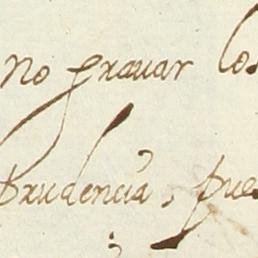 no grauar los
prudencia, pues